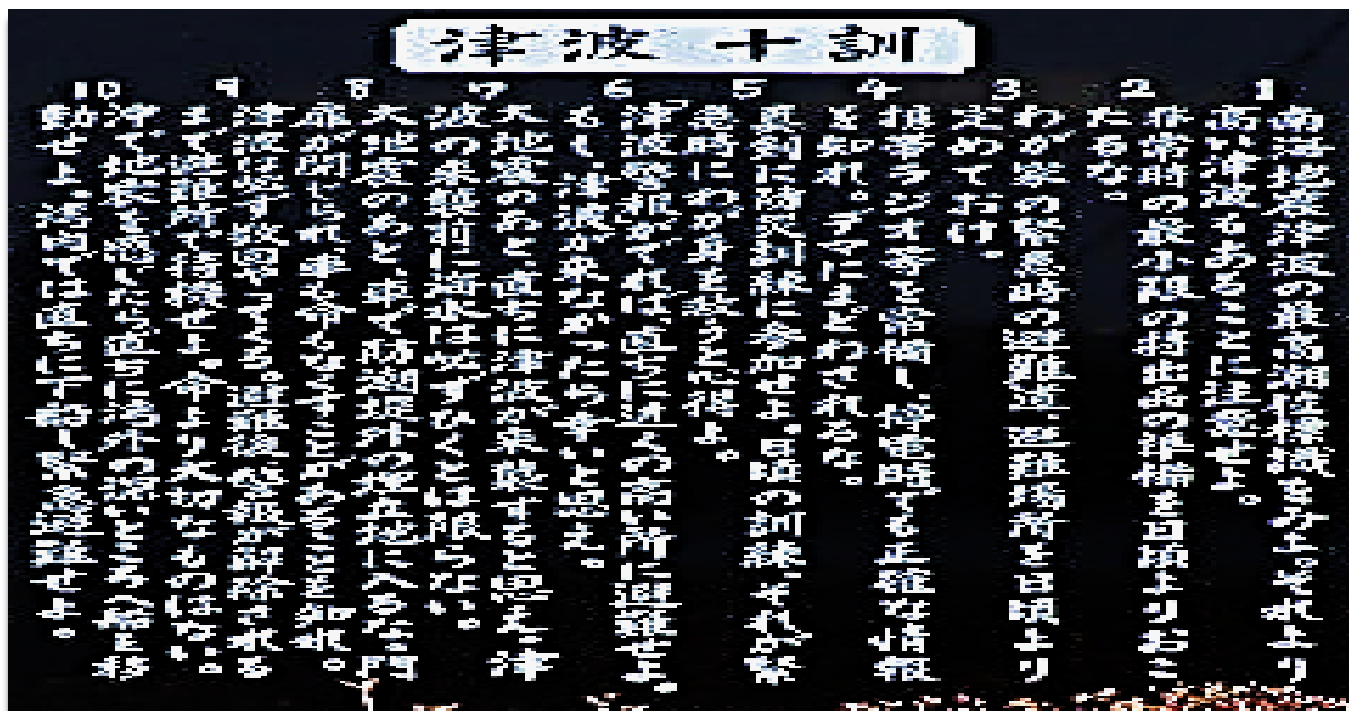 津波十訓
1
南海地震津波の最高潮位標識を。それより
高い津波もあることに注意せよ。
2
非常時の最小限の持出品の準備を日頃よりおこ
たるな
3
わが家の緊急時の避難道、避難場所を日頃より
定めておけ。
4
携帯ラジオ等を常備し、停電時でも正確な情報
を知れ。デマにまどわされるな。
5
真剣に防災訓練に参加せよ。日頃の訓練が緊
急時にわが身を救うと心得よ。
6
津波警報がでれば、直ちに近くの高い所に避難せよ
もし、津波が来なかったら幸いと思え。
7
大地震のあと直ちに津波が来襲すると思え。津
波の来襲前に は必ずひくとは限らない。
8
大地震のあと、車で防潮堤外埋立地に入るな。門
扉が閉じられ車も命も ことがあることを知れ。
9
津波は必ず数回やってくる。避難後、警報が解除される
まで避難所で待機せよ。命より大切なものはない。
10
沖で地震を感じたら直ちに の深いところへ船を移
動せよ。港内では直ちに下船し緊急避難せよ。